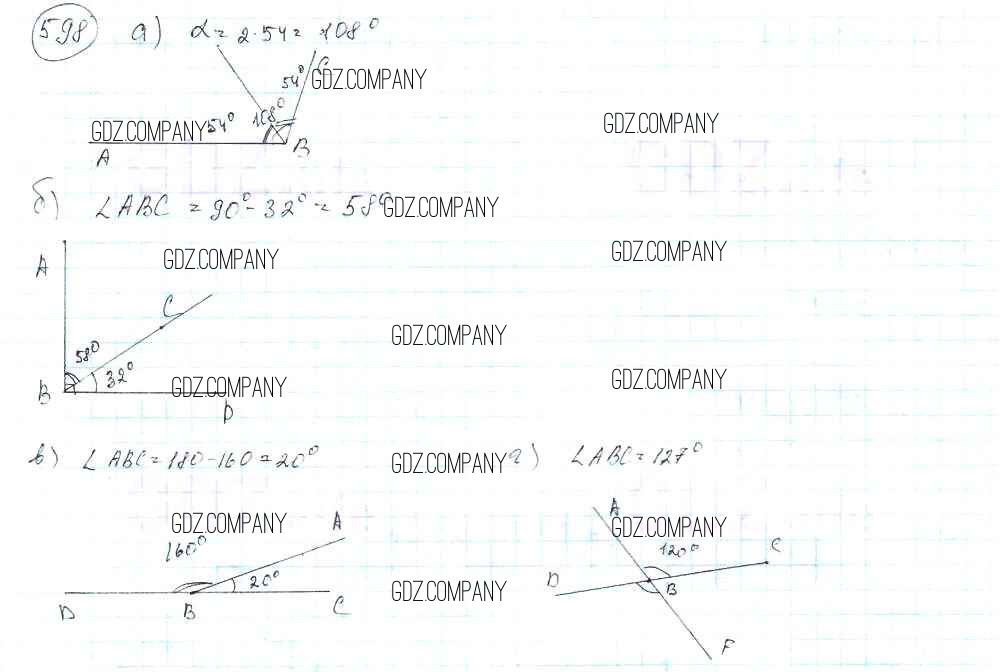 598 а) α = 2·54 = 108°
54° C GDZ.COMPANY
GDZ.COMPANY 54° 108° GDZ.COMPANY
A B
б) ∠ABC = 90° - 32° = 58° GDZ.COMPANY
A GDZ.COMPANY GDZ.COMPANY
C
GDZ.COMPANY
58°
B 32° GDZ.COMPANY GDZ.COMPANY
D
в) ∠ABC = 180 - 160 = 20° GDZ.COMPANY г) ∠ABC = 127°
GDZ.COMPANY A
160°
20°
D B C
GDZ.COMPANY
A
GDZ.COMPANY
120° C
D B
F